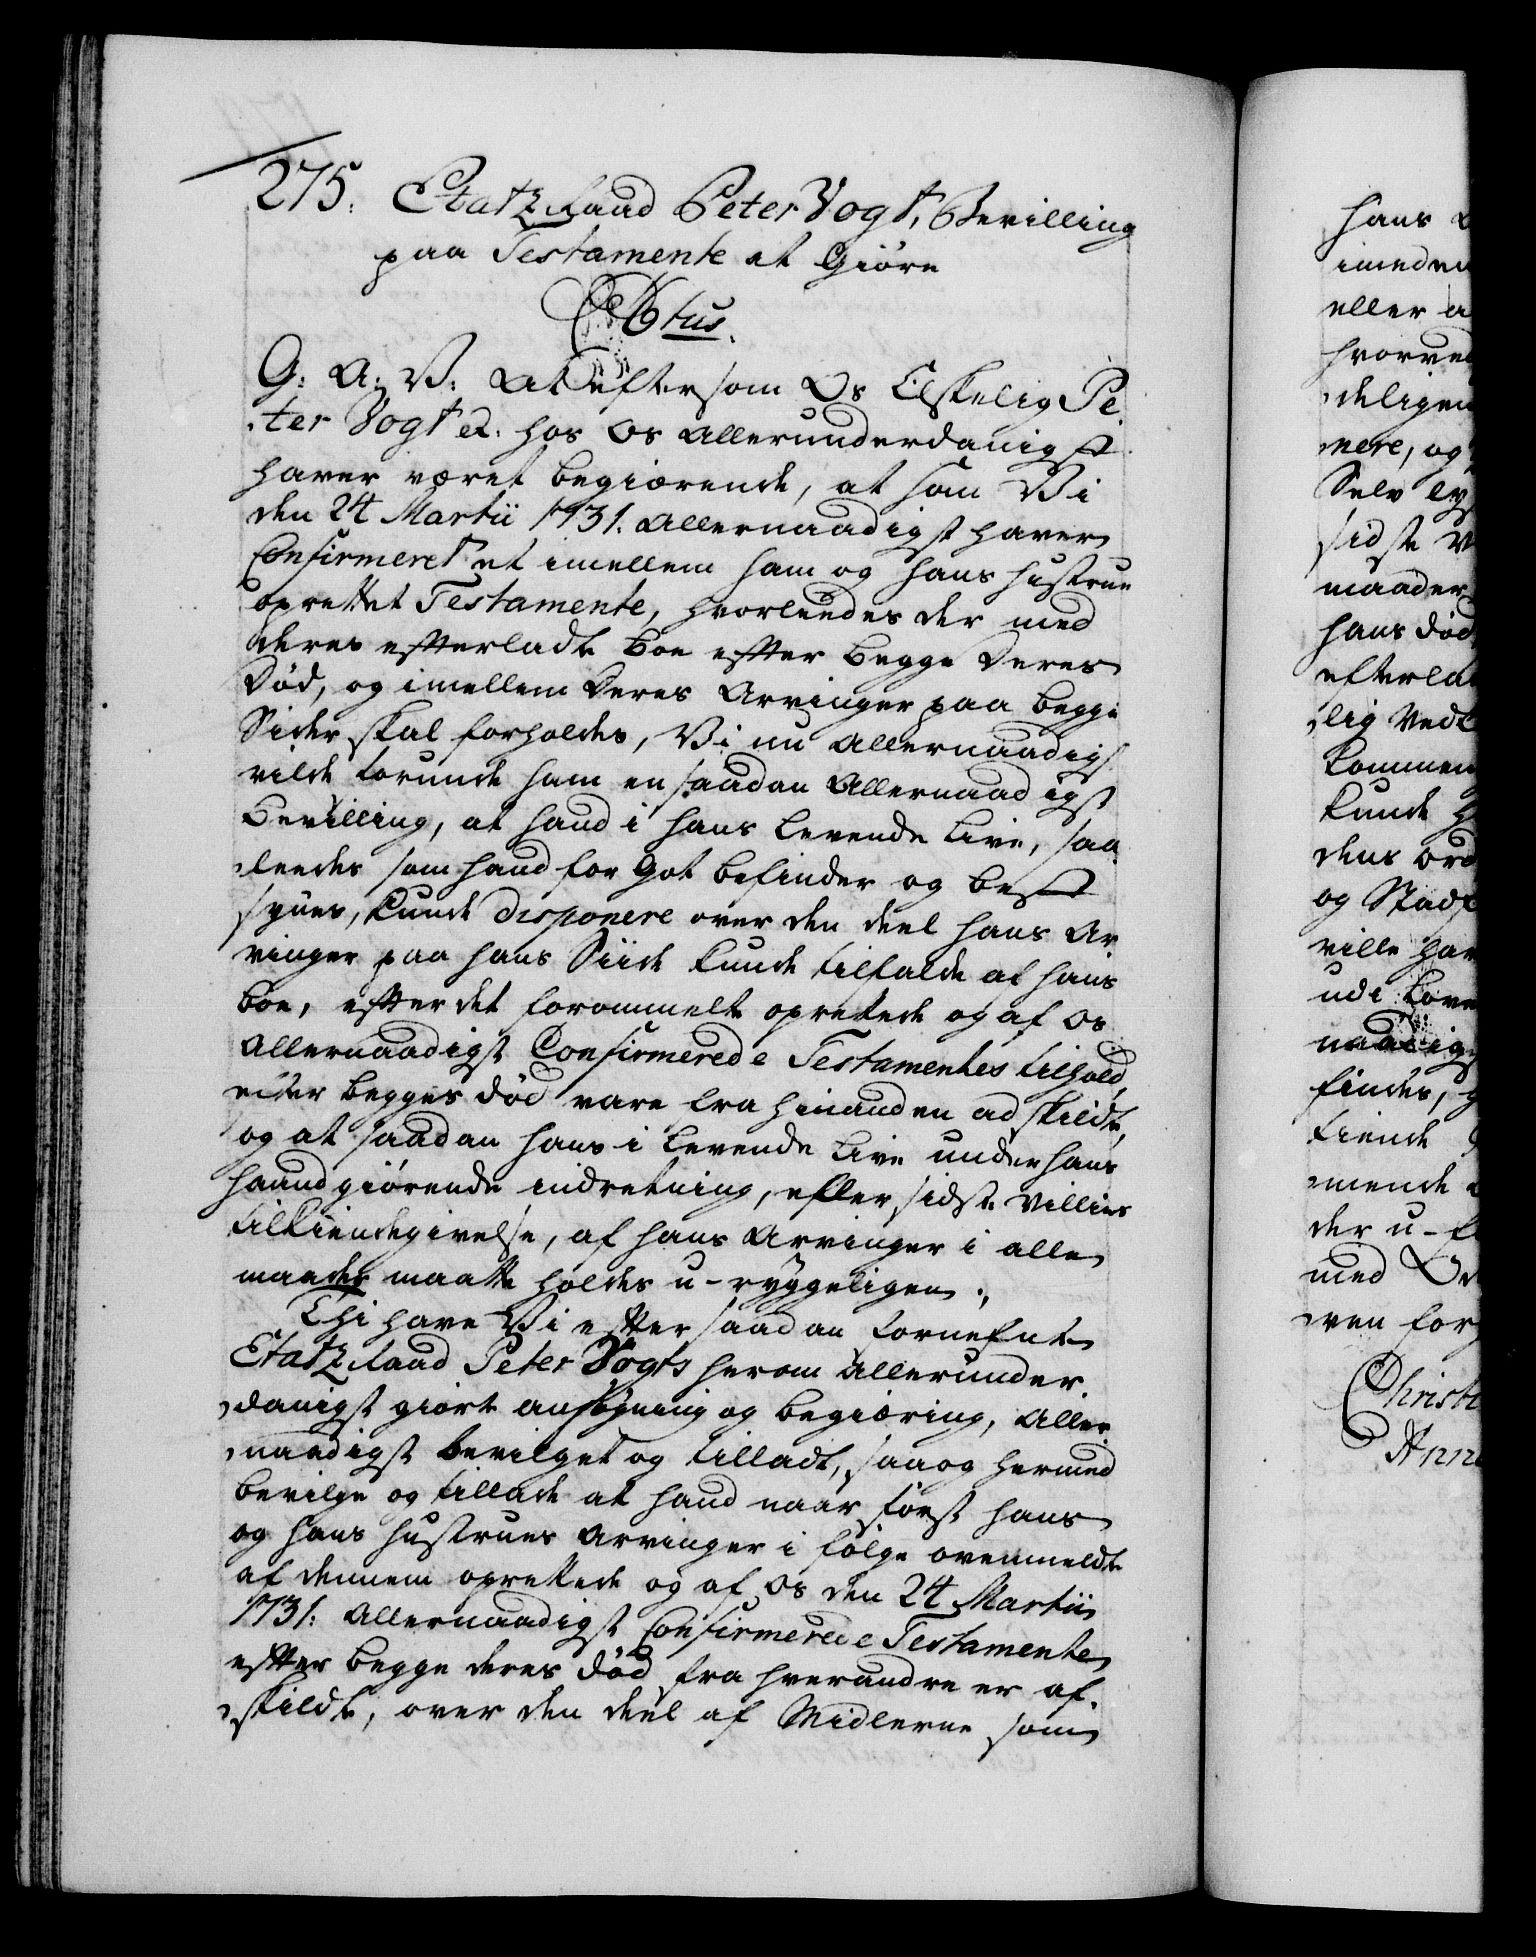 275. Etatz Raad Peter Vogt, Bevilling
paa Testamente at Giöre
C6tus.
G: A: V: At eftersom Os Elskelig Pe-
-ter Vogt etc. hos Os Allerunderdanigst
haver været begiærende, at som Vi
den 24 Martii 1731. Allernaadigst haver
Confirmeret et imellem ham og hans Hustrue
oprettet Testamente, hvorledes der med
deres efterladte Boe efter begge Deres
Död, og imellem Deres Arvinger paa begge
Sider skal forholdes, Vi nu Allernaadigst
vilde forunde ham en saadan Allernaadigst
Bevilling, at hand i hans levende Live, saa-
-ledes som hand for got befinder og best
synes, kunde disponere over den deel hans Ar
vinger paa hans Siide kunde tilfalde af hans
Boe, efter det forommelte oprettede og af Os
Allernaadigst Confirmerede Testamentes tilhold,
efter begges död vare fra hinanden adskildt,
og at saadan hans i levende Live under hans
haand giörende indretning, eller sidste Villies
tilkiendegivelse, af hans Arvinger i alle
maader maatte holdes u-ryggeligen.,
Thi have Vi efter saadan fornefnte
Etatz Raad Peter Vogts herom Allerunder-
-danigst giorte ansögning og begiæring, Aller-
-naadigst bevilget og tilladt, saa og hermed
bevilge og tillade at hand naar först hans
og hans Hustrues Arvinger i fölge ovenmeldte
af dennem oprettede og af Os den 24 Martii
1731. Allernaadigst Confirmerede Testamente
efter begge deres död fra hverandre er af-
-skildte, over den deel af Midlerne som
hans
imeden
eller a
hvorved
-deligen
-nere, og
Selv
sidste
maader
hans död
efterlad
-lig Vedt
kommen
kunde
dens ord
og Stadf
ville hav
udi love
naadigst
findes,
tiende
-mende
der u-f
med
-ven for
Christi
Anno